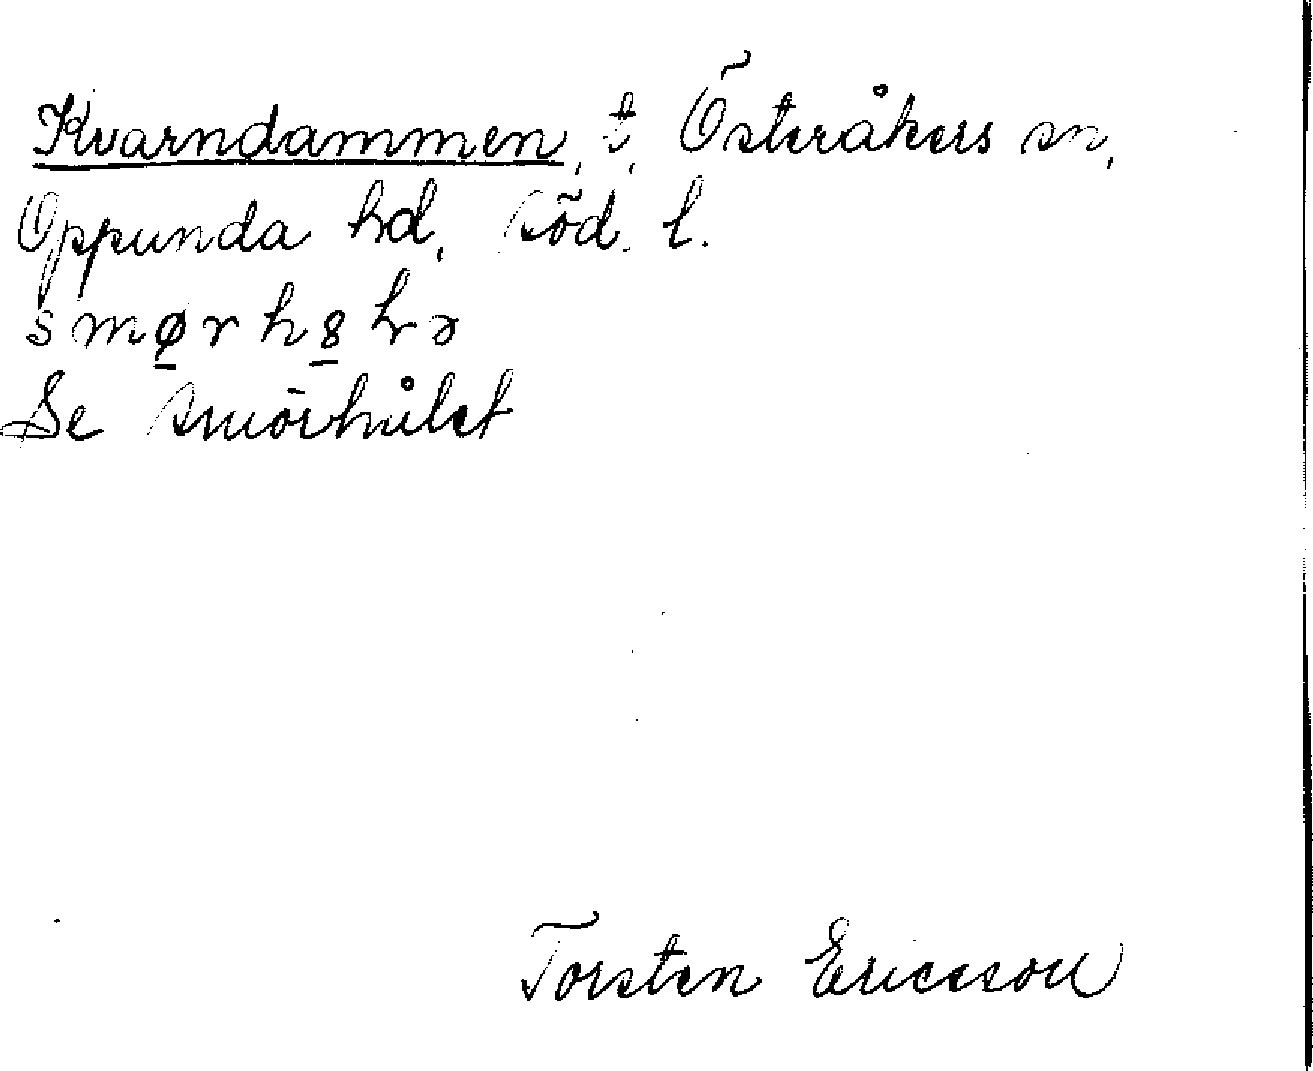 Kvarndammen, t, Österåkers sn,
Oppunda hd, Söd. l.
smørh8lrə
Se Smörhålet
Torsten Ericsson